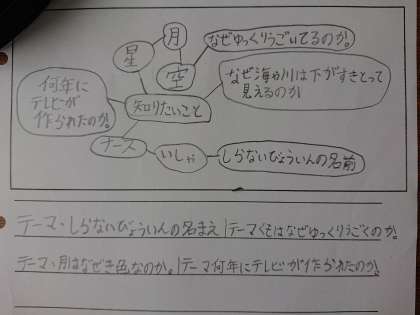 月
なぜゆっくりうごいてるのか。
星
空
なぜ海や川は下がすきとって
見えるのか
何年に
テレビが
作られたのか。
知りたいこと
ナース
いしゃ
しらないびょういんの名前
テーマ・しらないびょういんの名まえ|テーマくもはなぜゆっくりうごくのか。
テーマ・月はなぜき色なのか。|テーマ何年にテレビが作られたのか。